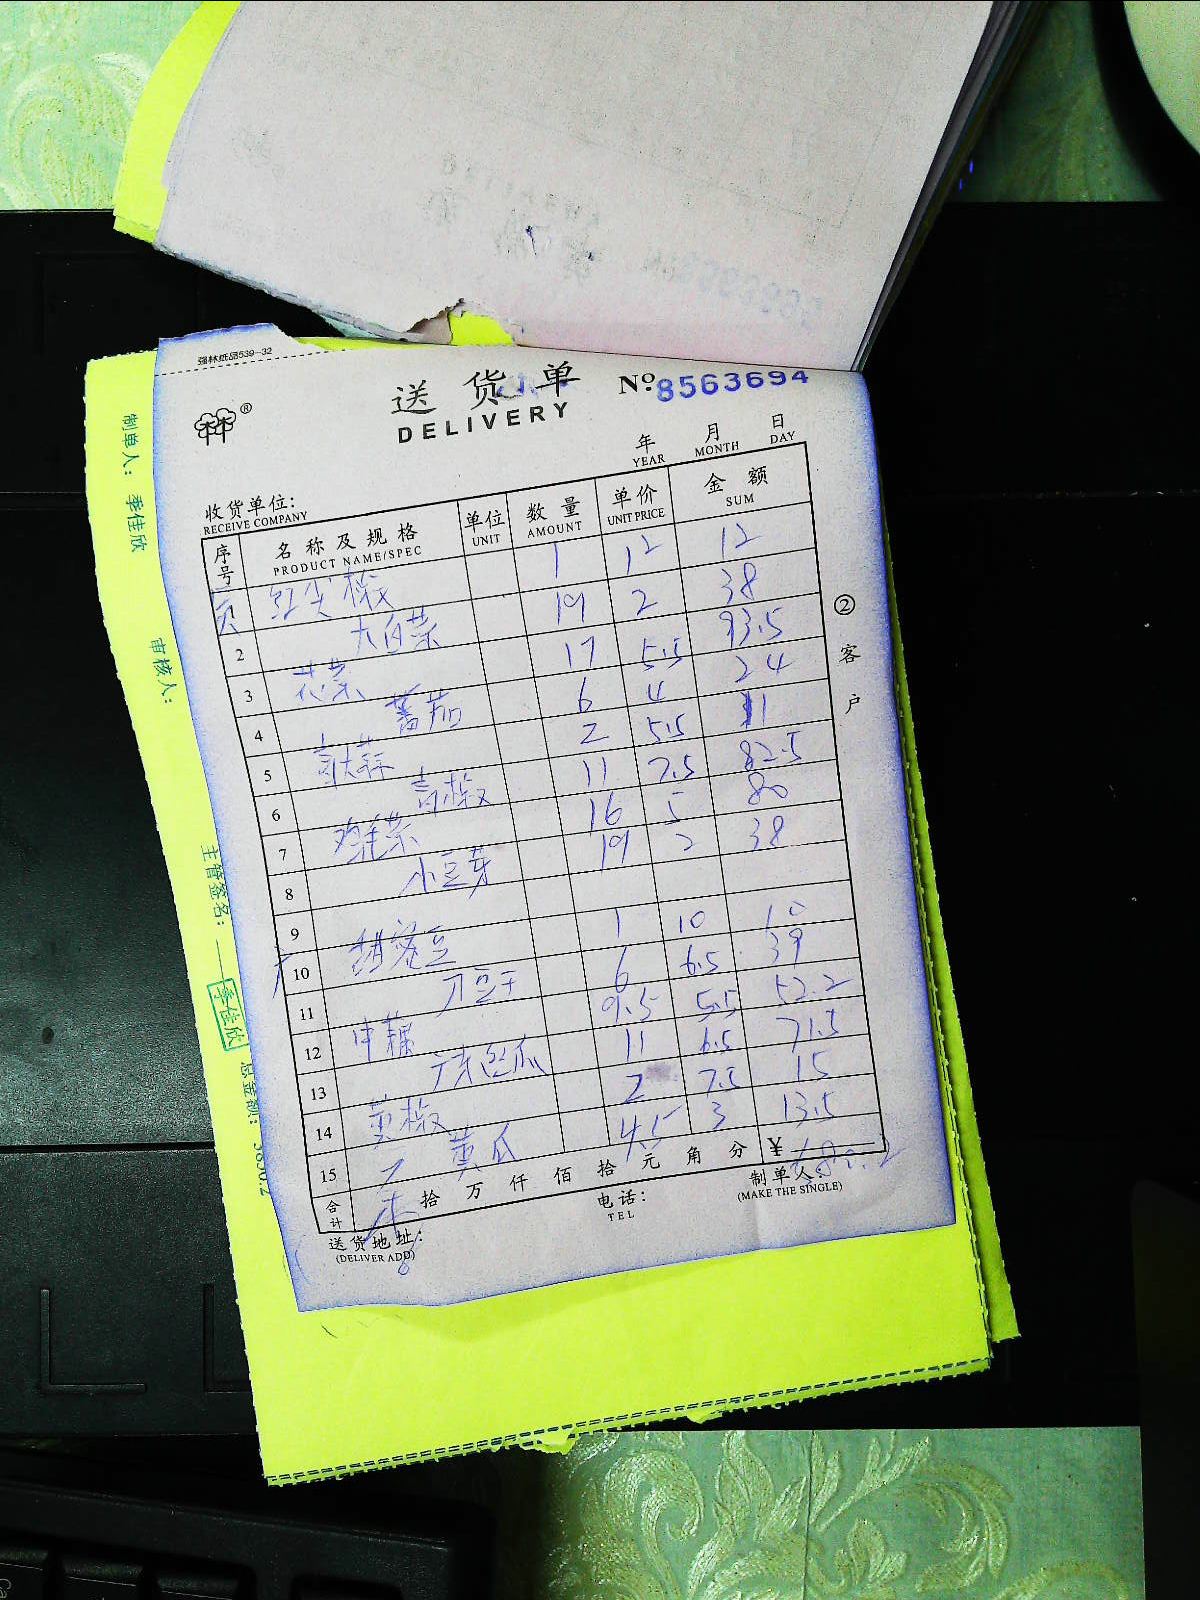 强林纸品539-32
送货单
DELIVERY
Nº 8563694
年 月 日
YEAR MONTH DAY
收货单位:
RECEIVE COMPANY
序号 名称及规格 单位 数量 单价 金额
PRODUCT NAME/SPEC UNIT AMOUNT UNIT PRICE SUM
红尖椒 1 12 12
2 大白菜 19 2 38
3 花菜 17 5.5 93.5
4 蕃茄 6 4 24
5 2 5.5 11
6 青椒 11 7.5 82.5
7 鸡毛菜 16 5 80
8 小豆芽 19 2 38
9
10 1 10 10
11 刀豆干 6 6.5 39
12 中藕 9.5 5.5 52.2
13 丝瓜 11 6.5 71.5
14 黄椒 2 7.5 15
15 黄瓜 4.5 3 13.5
合计 拾 万 仟 佰 拾 元 角 分 ¥
送货地址:
(DELIVER ADD)
电话:
TEL
制单人:
(MAKE THE SINGLE)
②客户
制单人: 季佳欣
审核人:
主管签名:
季佳欣
总金额: